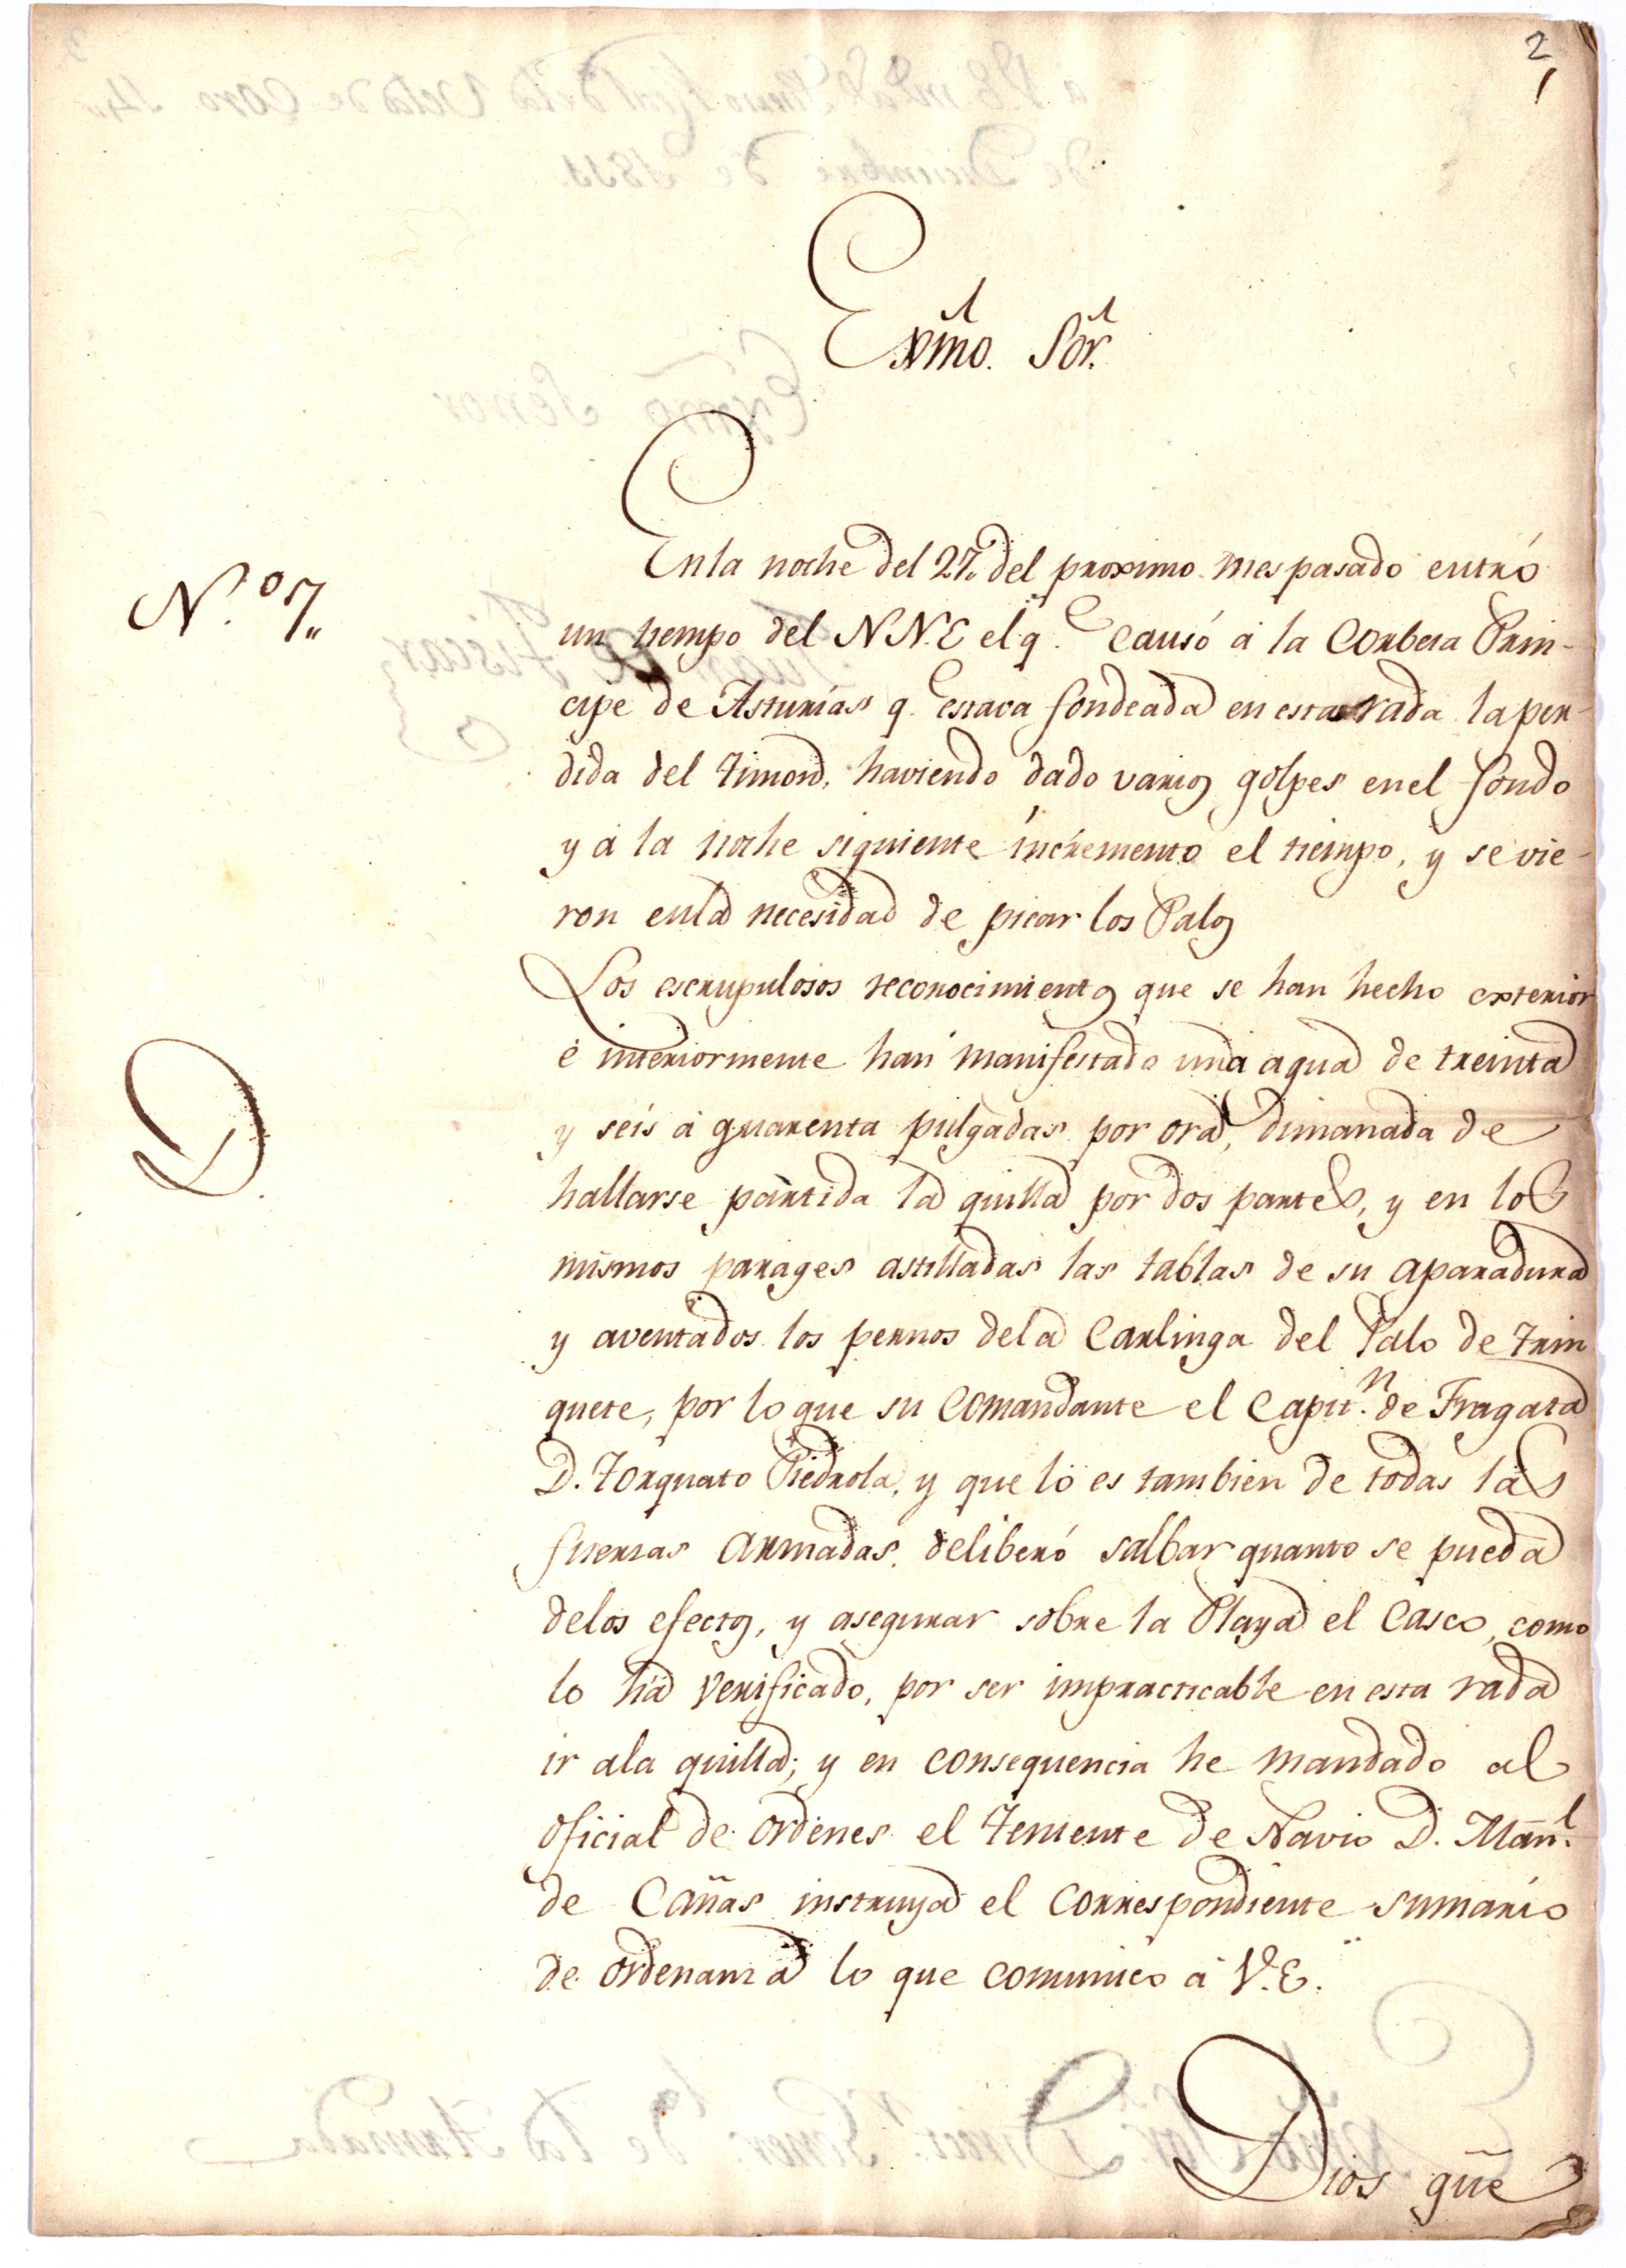 2
1
Exmo. Sõr.
N.º 7,,
En la noche del 27. del proximo mes pasado entró
un tiempo del N N.E el q.e causó á la Corbeta Prin-
cipe de Asturias q.e estava fondeada en esta rada la per-
dida del timon, haviendo dado varios golpes en el fondo
y á la noche siguiente incremento el tiempo, y se vie-
ron en la necesidad de picar los Palos
Los escrupulosos reconocimientos que se han hecho exterior
é interiormente han manifestado una agua de treinta
y seis á quarenta pulgadas por ora, dimanada de
hallarse partida la quilla por dos partes, y en los
mismos parages astilladas las tablas de su aparadura
y aventados los pernos de la Carlinga del Palo de Trin
quete, por lo que su Comandante el Capit.n de Fragata
D. Torquato Piedrola, y que lo es tambien de todas las
fuerzas armadas, deliberó salbar quanto se pueda
de los efectos, y asegurar sobre la Playa el Casco, como
lo ha verificado, por ser impracticable en esta rada
ir a la quilla; y en consequencia he mandado al
oficial de ordenes el Teniente de Navio D. Man.l
de Cañas instruya el correspondiente sumario
de ordenanza lo que comunico á V.E.
D.
Dios güe